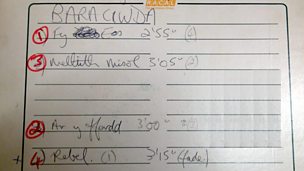 BARACWDA
① Fy Nos 2'55" (2)
③ Melltith Misol 3'05" (2)
② Ar y ffordd 3'00"
④ Rebel. (1) 3'15" (fade.)